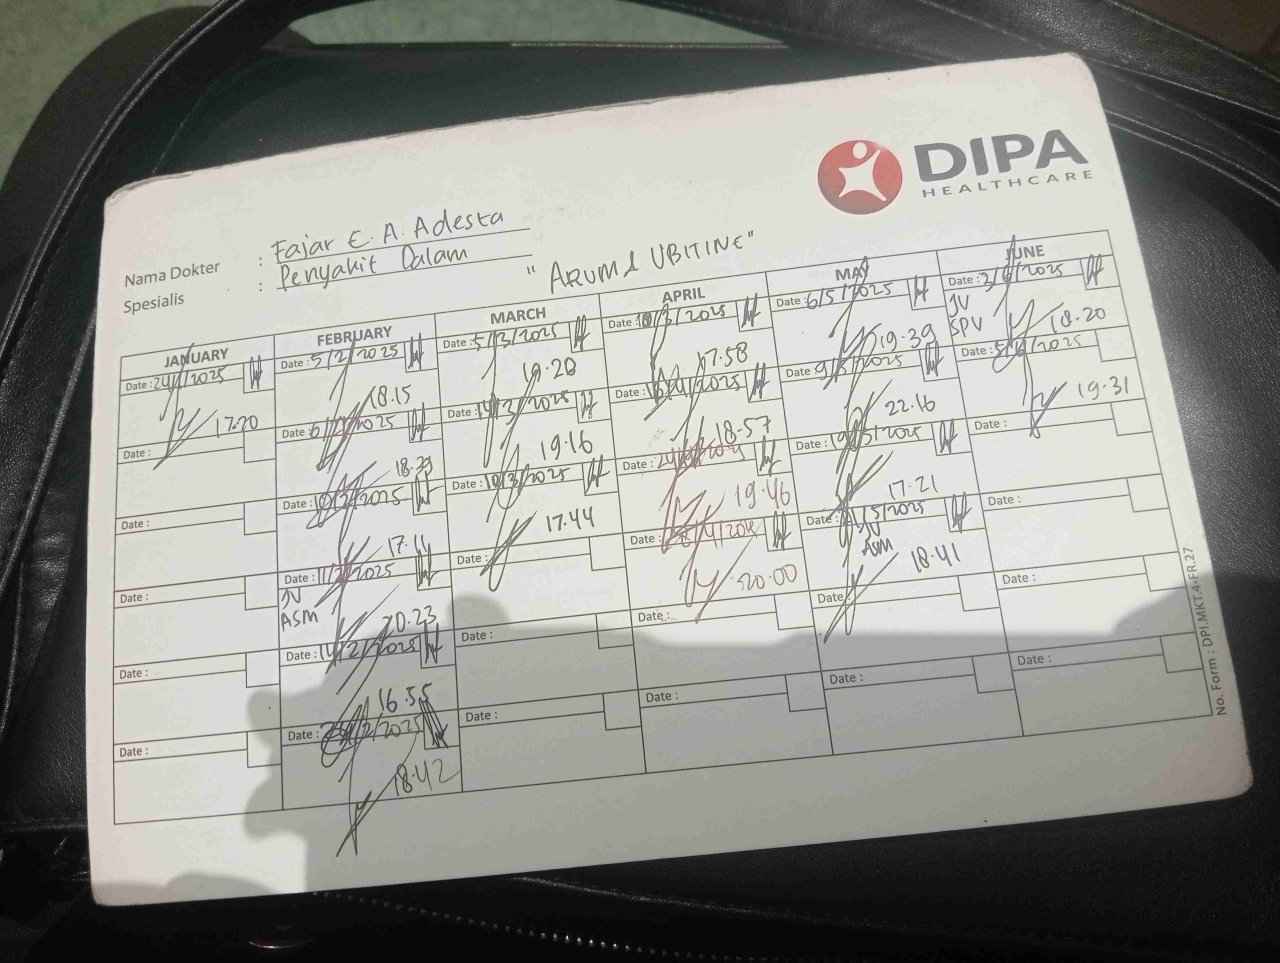 DIPA
HEALTHCARE
Nama Dokter : Fajar E. A. Adesta
Spesialis : Penyakit Dalam
"ARUM & UBITINE"
JANUARY
Date : 24/1/2025
17.20
Date :
Date :
Date :
Date :
Date :
FEBRUARY
Date : 5/2/2025
18.15
Date : 6/2/2025
18.23
Date : 10/2/2025
17.11
Date : 11/2/2025
JV
ASM
20.23
Date : 14/2/2025
16.55
Date : /2/2025
18.42
MARCH
Date : 5/3/2025
19.20
Date : 14/3/2025
19.16
Date : /3/2025
17.44
Date :
Date :
Date :
APRIL
Date : /2025
17.58
Date : /4/2025
18.57
Date :
19.46
Date :
20.00
Date :
Date :
MAY
Date : 6/5/2025
19.39
Date : 9/5/2025
22.16
Date : 19/5/2025
17.21
Date : /5/2025
JV
ASM
18.41
Date :
Date :
JUNE
Date : 3/6/2025
JV
SPV
18.20
Date : 5/6/2025
19.31
Date :
Date :
Date :
Date :
No. Form : DPI.MKT.4-FR.27